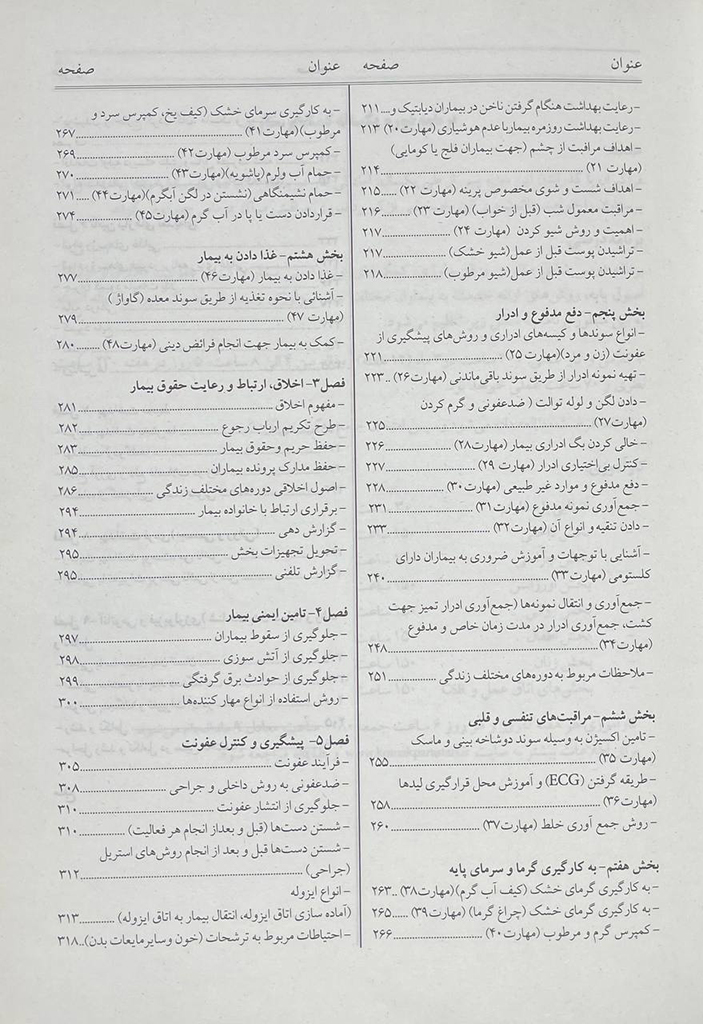 عنوان صفحه
-رعایت بهداشت هنگام گرفتن ناخن در بیماران دیابتیک و.... ۲۱۱
-رعایت بهداشت روزمره بیماربا عدم هوشیاری (مهارت ۲۰) ۲۱۳
-اهداف مراقبت از چشم (جهت بیماران فلج یا کومایی)
(مهارت ۲۱) ........ ۲۱۴
-اهداف شست و شوی مخصوص پرینه (مهارت ۲۲) ........ ۲۱۵
-مراقبت معمول شب (قبل از خواب) (مهارت ۲۳) ........ ۲۱۶
-اهمیت و روش شیو کردن (مهارت ۲۴) ........ ۲۱۷
-تراشیدن پوست قبل از عمل(شیو خشک) ........ ۲۱۷
-تراشیدن پوست قبل از عمل(شیو مرطوب) ........ ۲۱۸
بخش پنجم- دفع مدفوع و ادرار
-انواع سوندها و کیسه‌های ادراری و روش‌های پیشگیری از
عفونت (زن و مرد)(مهارت ۲۵) ........ ۲۲۱
-تهیه نمونه ادرار از طریق سوند باقی‌ماندنی (مهارت۲۶) .. ۲۲۳
-دادن لگن و لوله توالت (ضدعفونی و گرم کردن
(مهارت۲۷) ........ ۲۲۵
-خالی کردن بگ ادراری بیمار (مهارت۲۸) ........ ۲۲۶
-کنترل بی‌اختیاری ادرار (مهارت ۲۹) ........ ۲۲۷
-دفع مدفوع و موارد غیر طبیعی (مهارت۳۰) ........ ۲۲۸
-جمع‌آوری نمونه مدفوع (مهارت۳۱) ........ ۲۳۱
-دادن تنقیه و انواع آن (مهارت۳۲) ........ ۲۳۳
-آشنایی با توجهات و آموزش ضروری به بیماران دارای
کلستومی (مهارت۳۳) ........ ۲۴۰
-جمع‌آوری و انتقال نمونه‌ها (جمع‌آوری ادرار تمیز جهت
کشت، جمع‌آوری ادرار در مدت زمان خاص و مدفوع
(مهارت۳۴) ........ ۲۴۸
-ملاحظات مربوط به دوره‌های مختلف زندگی ........ ۲۵۱
بخش ششم- مراقبت‌های تنفسی و قلبی
-تامین اکسیژن به وسیله سوند دوشاخه بینی و ماسک
(مهارت ۳۵) ........ ۲۵۵
-طریقه گرفتن (ECG) و آموزش محل قرارگیری لیدها
(مهارت۳۶) ........ ۲۵۸
-روش جمع آوری خلط (مهارت۳۷) ........ ۲۶۰
بخش هفتم- به کارگیری گرما و سرمای پایه
-به کارگیری گرمای خشک (کیف آب گرم)(مهارت۳۸) .. ۲۶۳
-به کارگیری گرمای خشک (چراغ گرما) (مهارت۳۹) ..... ۲۶۵
-کمپرس گرم و مرطوب (مهارت۴۰) ........ ۲۶۶
عنوان صفحه
-به کارگیری سرمای خشک (کیف یخ، کمپرس سرد و
مرطوب)(مهارت۴۱) ........ ۲۶۷
-کمپرس سرد مرطوب (مهارت۴۲) ........ ۲۶۹
-حمام آب ولرم (پاشویه)(مهارت۴۳) ........ ۲۷۰
-حمام نشیمنگاهی (نشستن در لگن آبگرم)(مهارت۴۴) ..... ۲۷۱
-قراردادن دست یا پا در آب گرم (مهارت۴۵) ........ ۲۷۴
بخش هشتم- غذا دادن به بیمار
-غذا دادن به بیمار (مهارت۴۶) ........ ۲۷۷
-آشنائی با نحوه تغذیه از طریق سوند معده (گاواژ )
(مهارت ۴۷) ........ ۲۷۹
-کمک به بیمار جهت انجام فرائض دینی (مهارت۴۸) ........ ۲۸۰
فصل۳- اخلاق، ارتباط و رعایت حقوق بیمار
-مفهوم اخلاق ........ ۲۸۱
-طرح تکریم ارباب رجوع ........ ۲۸۲
-حفظ حریم وحقوق بیمار ........ ۲۸۳
-حفظ مدارک پرونده بیماران ........ ۲۸۵
-اصول اخلاقی دوره‌های مختلف زندگی ........ ۲۸۶
-برقراری ارتباط با خانواده بیمار ........ ۲۹۴
-گزارش دهی ........ ۲۹۴
-تحویل تجهیزات بخش ........ ۲۹۵
-گزارش تلفنی ........ ۲۹۵
فصل۴- تامین ایمنی بیمار
-جلوگیری از سقوط بیماران ........ ۲۹۷
-جلوگیری از آتش سوزی ........ ۲۹۸
-جلوگیری از حوادث برق گرفتگی ........ ۲۹۹
-روش استفاده از انواع مهار کننده‌ها ........ ۳۰۰
فصل۵- پیشگیری و کنترل عفونت
-فرآیند عفونت ........ ۳۰۵
-ضدعفونی به روش داخلی و جراحی ........ ۳۰۸
-جلوگیری از انتشار عفونت ........ ۳۱۰
-شستن دست‌ها (قبل و بعداز انجام هر فعالیت) ........ ۳۱۰
-شستن دست‌ها قبل و بعد از انجام روش‌های استریل
(جراحی) ........ ۳۱۲
-انواع ایزوله
(آماده سازی اتاق ایزوله، انتقال بیمار به اتاق ایزوله) ........ ۳۱۳
-احتیاطات مربوط به ترشحات (خون وسایرمایعات بدن).. ۳۱۸